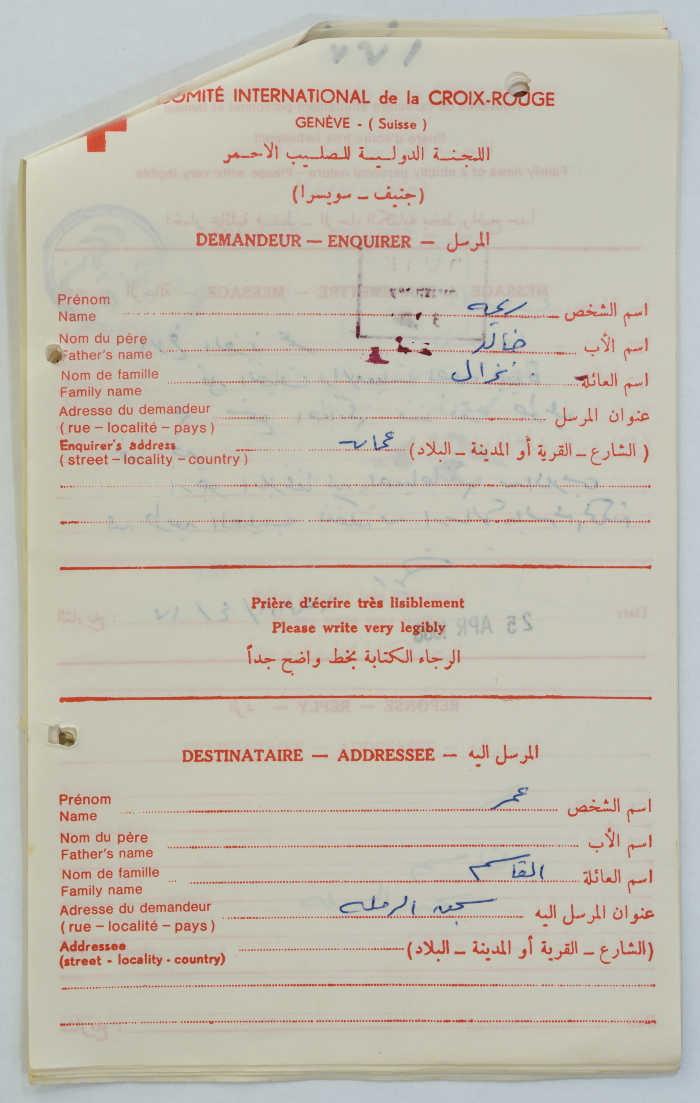 COMITÉ INTERNATIONAL de la CROIX-ROUGE
GENÈVE - ( Suisse )
اللجنة الدولية للصليب الاحمر
(جنيف - سويسرا)
DEMANDEUR — ENQUIRER — المرسل
Prénom
Name
اسم الشخص
Nom du père
Father's name
خالد
اسم الأب
Nom de famille
Family name
نزال
اسم العائلة
Adresse du demandeur
( rue – localité – pays )
عنوان المرسل
Enquirer's address
( street – locality – country )
عمان
( الشارع - القرية أو المدينة - البلاد)
Prière d'écrire très lisiblement
Please write very legibly
الرجاء الكتابة بخط واضح جداً
DESTINATAIRE — ADDRESSEE — المرسل اليه
Prénom
Name
عمر
اسم الشخص
Nom du père
Father's name
اسم الأب
Nom de famille
Family name
القاسم
اسم العائلة
Adresse du demandeur
( rue – localité – pays )
سجن الرمله
عنوان المرسل اليه
Addressee
(street - locality - country)
(الشارع - القرية أو المدينة - البلاد)